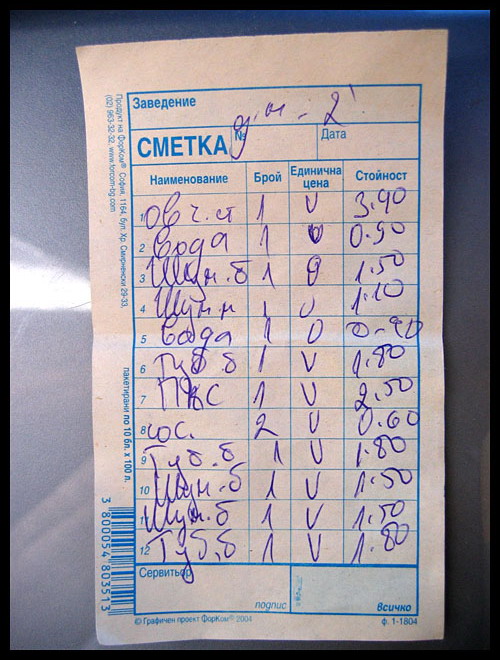 Заведение
СМЕТКА № Дата
Наименование Брой Единична цена Стойност
1 Овч. ст 1 V 3.90
2 Вода 1 V 0.90
3 Шун.б 1 1.50
4 Шун.н 1 V 1.10
5 Вода 1 V 0-90
6 Туб.б 1 V 1.80
7 1 V 2.50
8 сос. 2 V 0.60
9 Туб.б 1 V 1.80
10 Шун.б 1 V 1.50
11 Шун.б 1 V 1.50
12 Туб.б 1 V 1.80
Сервитьор
подпис всичко
© Графичен проект ФорКом® 2004 ф. 1-1804
Продукт на ФорКом® София, 1164, бул. Хр. Смирненски 29-33,
(02) 963-32-32, www.forcom-bg.com
пакетирани по 10 бл. х 100 л.
3 800054 803513